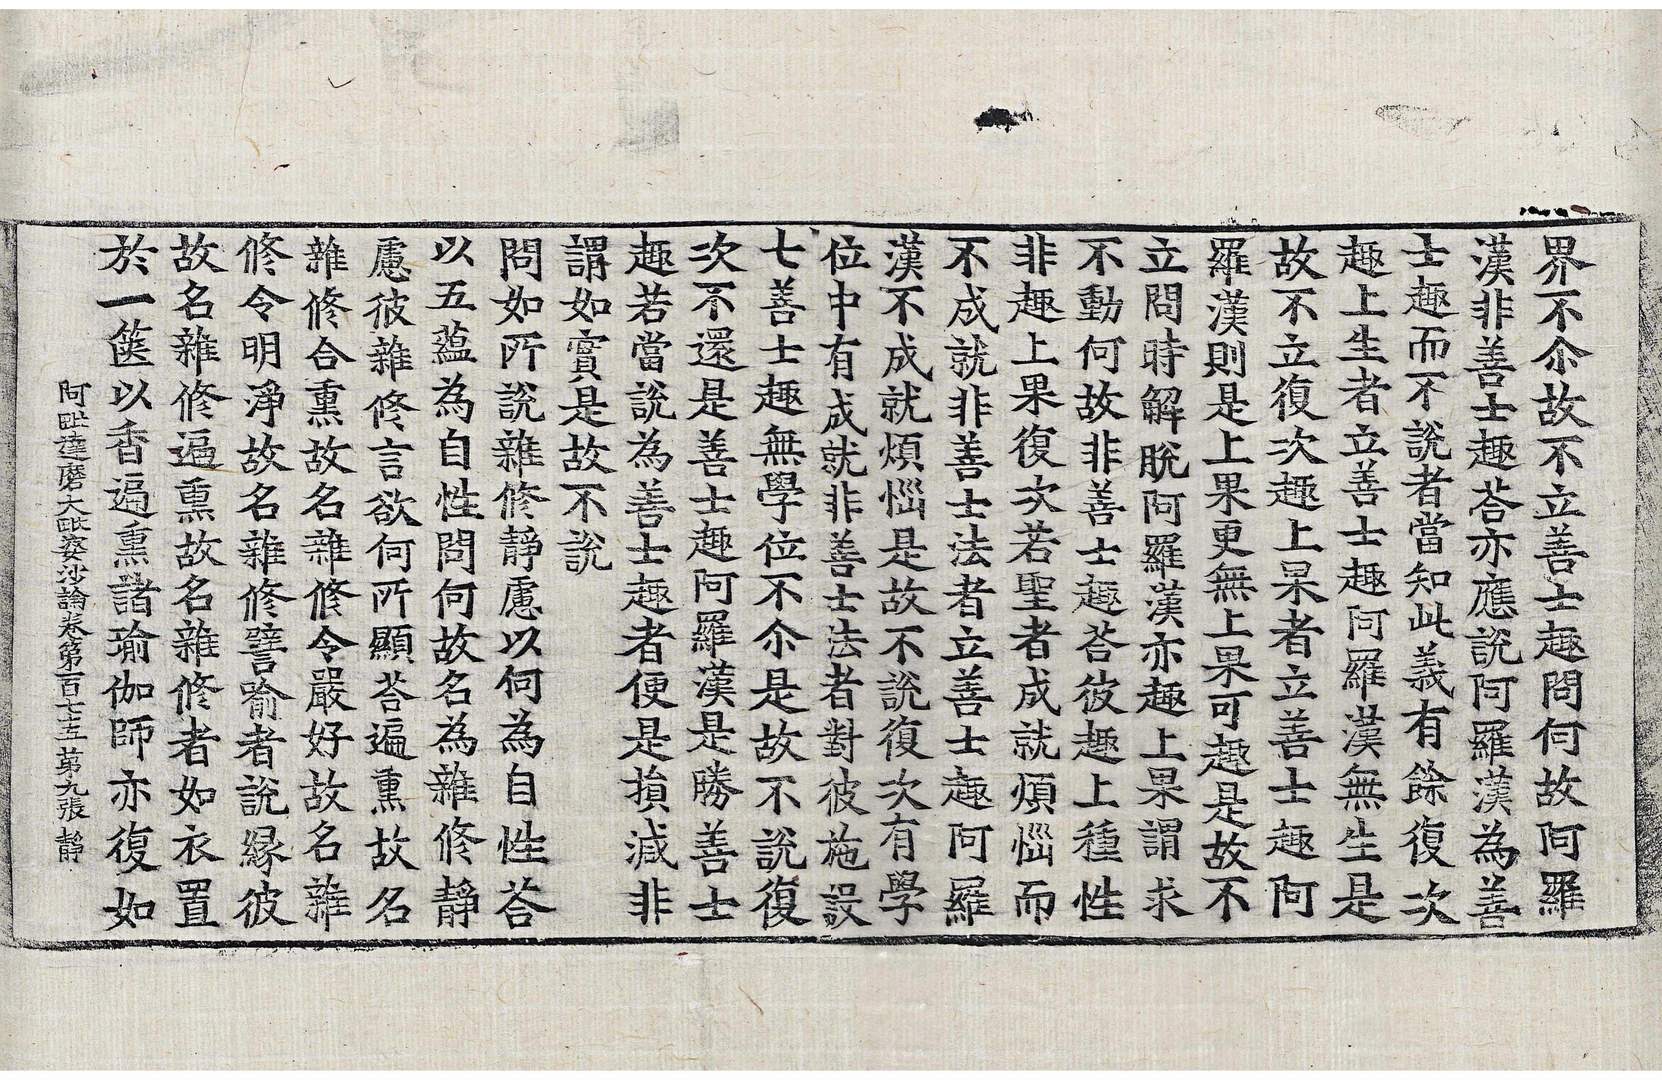 界不尒故不立善士趣問何故阿羅
漢非善士趣荅亦應說阿羅漢為善
士趣而不說者當知此義有餘復次
趣上生者立善士趣阿羅漢無生是
故不立復次趣上果者立善士趣阿
羅漢則是上果更無上果可趣是故不
立問時解脫阿羅漢亦趣上果謂求
不動何故非善士趣荅彼趣上種性
非趣上果復次若聖者成就煩惱而
不成就非善士法者立善士趣阿羅
漢不成就煩惱是故不說復次有學
位中有成就非善士法者對彼施設
七善士趣無學位不尒是故不說復
次不還是善士趣阿羅漢是勝善士
趣若當說為善士趣者便是損減非
謂如實是故不說
問如所說雜修靜慮以何為自性荅
以五蘊為自性問何故名為雜修靜
慮彼雜修言欲何所顯荅遍熏故名
雜修合熏故名雜修令嚴好故名雜
修令明淨故名雜修譬喻者說緣彼
故名雜修遍熏故名雜修者如衣置
於一篋以香遍熏諸瑜伽師亦復如
阿毗達磨大毗婆沙論卷第百七十五 第九張 靜